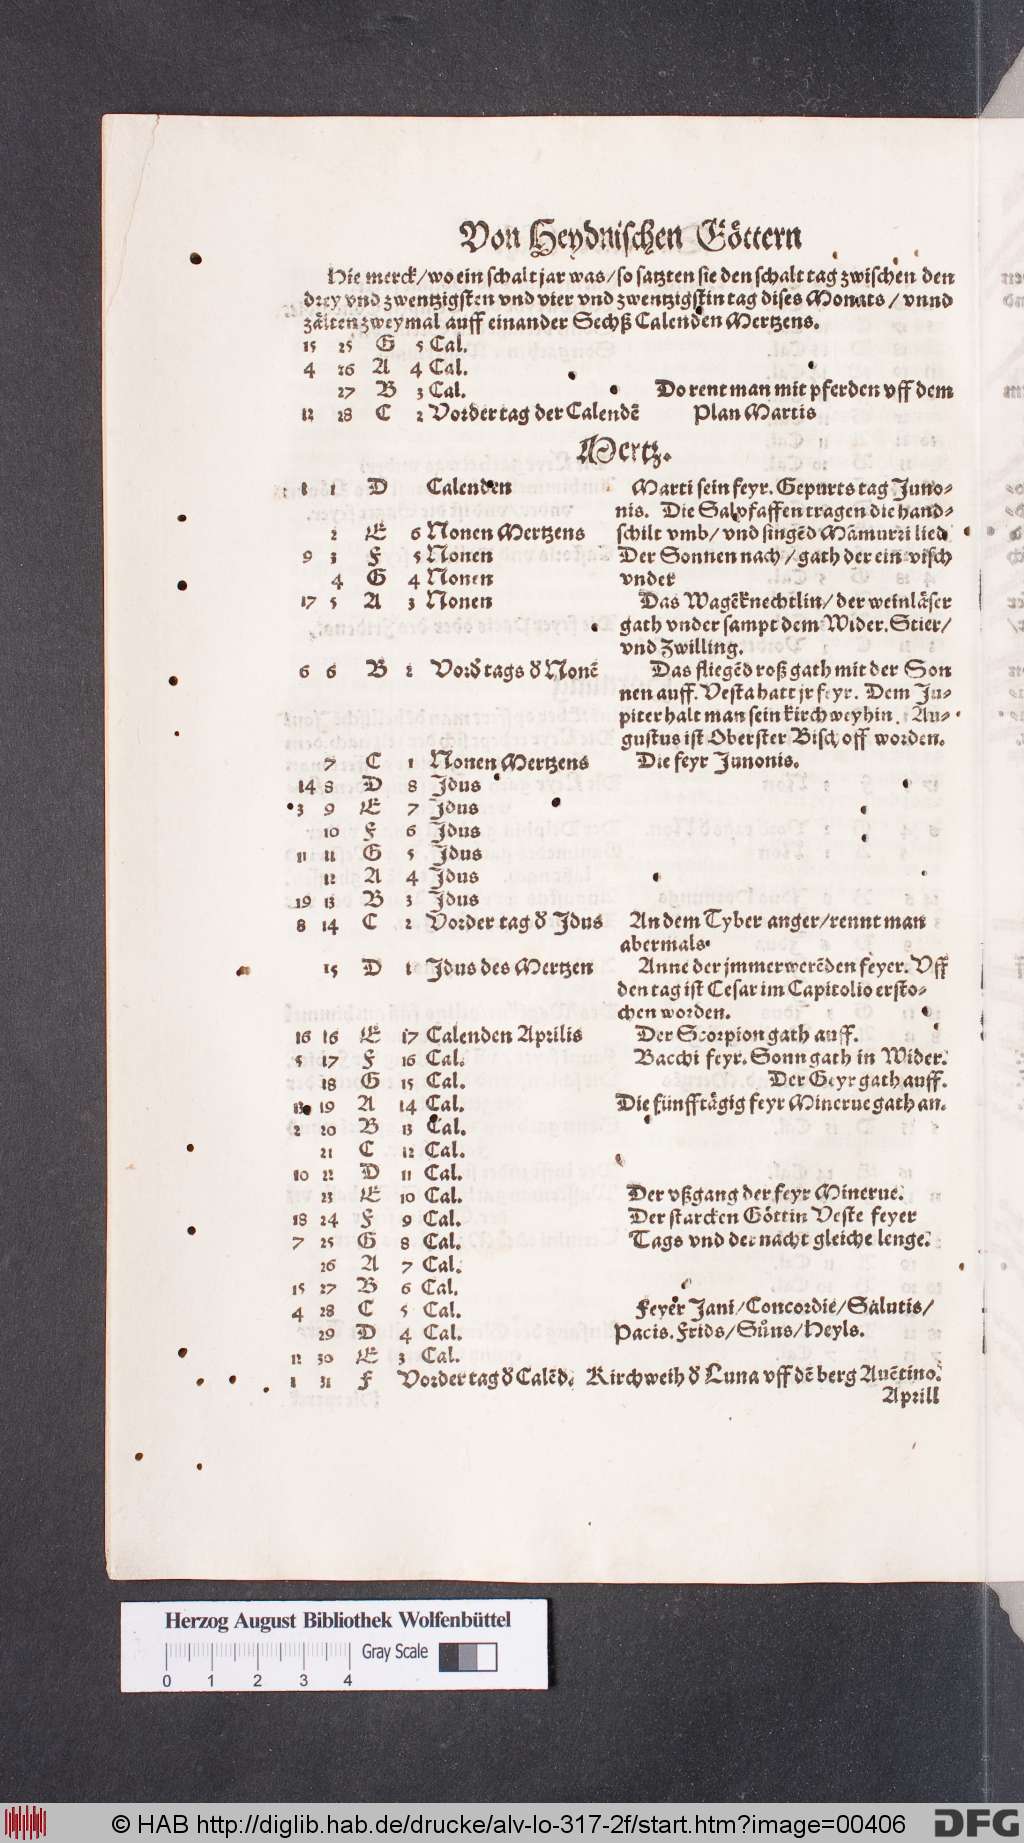 Von Heydnischen Göttern
Hie merck/wo ein schalt jar was/so satzten sie den schalt tag zwischen den
drey vnd zwentzigsten vnd vier vnd zwentzigstin tag dises Monats/vnnd
zälten zweymal auff einander Sechß Calenden Mertzens.
15 25 G 5 Cal.
4 26 A 4 Cal.
27 B 3 Cal. Do rent man mit pferden vff dem
12 28 C 2 Vorder tag der Calendē Plan Martis
Mertz.
1 1 D Calenden Marti sein feyr. Gepurts tag Juno-
nis. Die Salpfaffen tragen die hand-
2 E 6 Nonen Mertzens schilt vmb/vnd singēd Mämurzi lied
9 3 F 5 Nonen Der Sonnen nach/gath der ein visch
4 G 4 Nonen vnder
17 5 A 3 Nonen Das Wagēknechtlin/der weinläser
gath vnder sampt dem Wider. Stier/
vnd Zwilling.
6 6 B 2 Vord tags d Nonē Das fliegēd roß gath mit der Son
nen auff. Vesta hatt jr feyr. Dem Ju-
piter halt man sein kirchweyhin. Au-
gustus ist Oberster Bischoff worden.
7 C 1 Nonen Mertzens Die feyr Junonis.
14 8 D 8 Jdus
3 9 E 7 Jdus
10 F 6 Jdus
11 11 G 5 Jdus
12 A 4 Jdus
19 13 B 3 Jdus
8 14 C 2 Vorder tag d Jdus An dem Tyber anger/rennt man
abermals.
15 D 1 Jdus des Mertzen Anne der jmmerwerēden feyer. Vff
den tag ist Cesar im Capitolio ersto-
chen worden.
16 16 E 17 Calenden Aprilis Der Scorpion gath auff.
5 17 F 16 Cal. Bacchi feyr. Sonn gath in Wider.
18 G 15 Cal. Der Geyr gath auff.
13 19 A 14 Cal. Die fünfftägig feyr Minerue gath an.
2 20 B 13 Cal.
21 C 12 Cal.
10 22 D 11 Cal.
23 E 10 Cal. Der vßgang der feyr Minerue.
18 24 F 9 Cal. Der starcken Göttin Veste feyer
7 25 G 8 Cal. Tags vnd der nacht gleiche lenge.
26 A 7 Cal.
15 27 B 6 Cal.
4 28 C 5 Cal. Feyer Jani/Concordie/Salutis/
29 D 4 Cal. Pacis. Frids/Sůns/Heyls.
12 30 E 3 Cal.
1 31 F Vorder tag d Calēd. Kirchweih d Luna vff dē berg Auētino.
Aprill
Herzog August Bibliothek Wolfenbüttel
Gray Scale
0 1 2 3 4
© HAB http://diglib.hab.de/drucke/alv-lo-317-2f/start.htm?image=00406
DFG